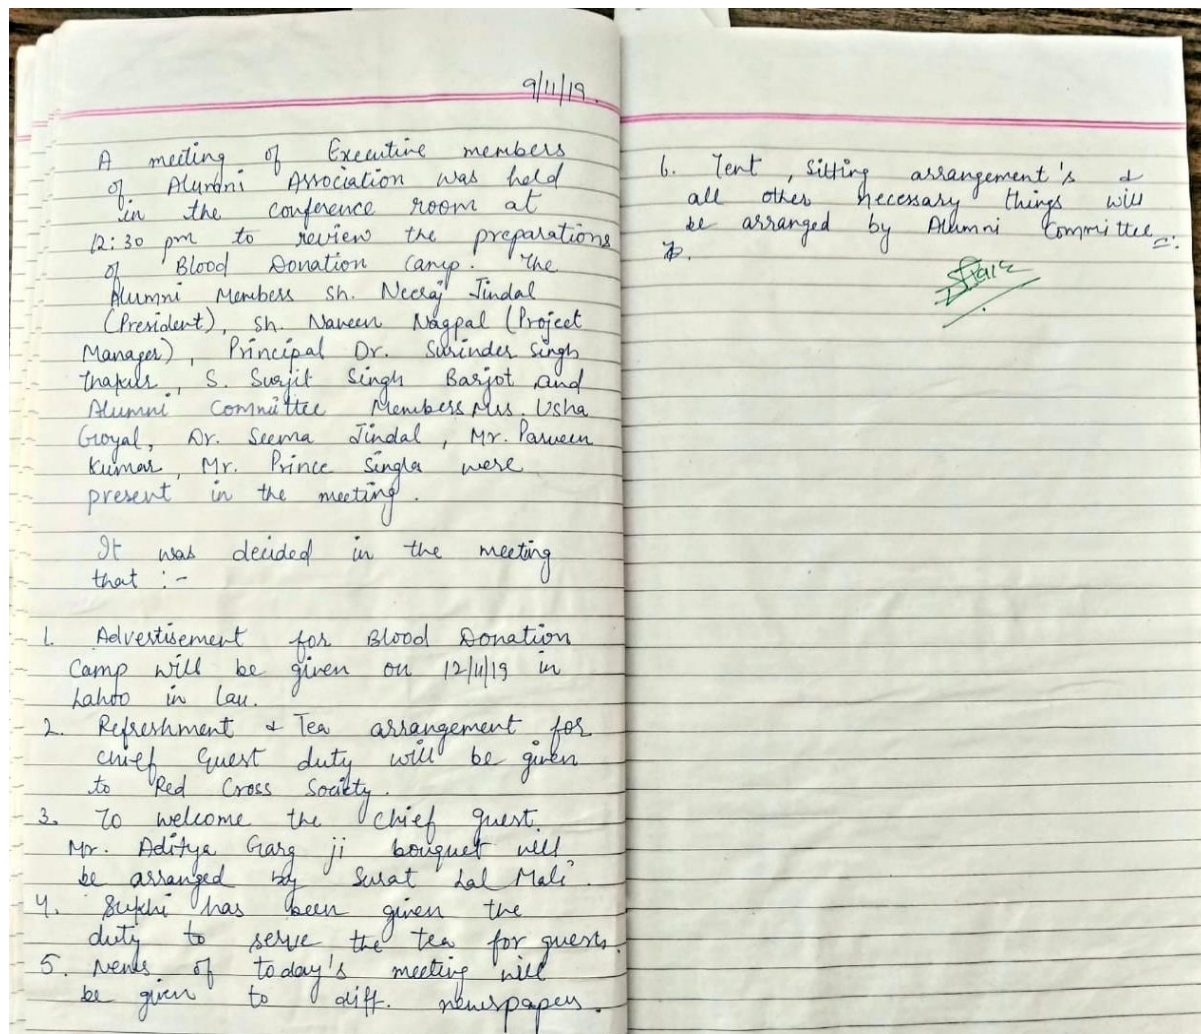 9/11/19.
A meeting of Executive members
of Alumni Association was held
in the conference room at
12:30 pm to review the preparations
of Blood Donation Camp. The
Alumni Members Sh. Neeraj Jindal
(President), Sh. Naveen Nagpal (Project
Manager), Principal Dr. Surinder Singh
Thakur, S. Surjit Singh Barjot and
Alumni Committee Members Mrs. Usha
Goyal, Dr. Seema Jindal, Mr. Parveen
Kumar, Mr. Prince Singla were
present in the meeting.
It was decided in the meeting
that :-
1. Advertisement for Blood Donation
Camp will be given on 12/11/19 in
Lahoo in Lau.
2. Refreshment & Tea arrangement for
chief Guest duty will be given
to Red Cross Society.
3. To welcome the Chief guest.
Mr. Aditya Garg ji bouquet will
be arranged by Surat Lal Mali.
4. Sukhi has been given the
duty to serve the tea for guests.
5. News of today's meeting will
be given to diff. newspapers.
6. Tent, Sitting arrangement's &
all other necessary things will
be arranged by Alumni Committee.